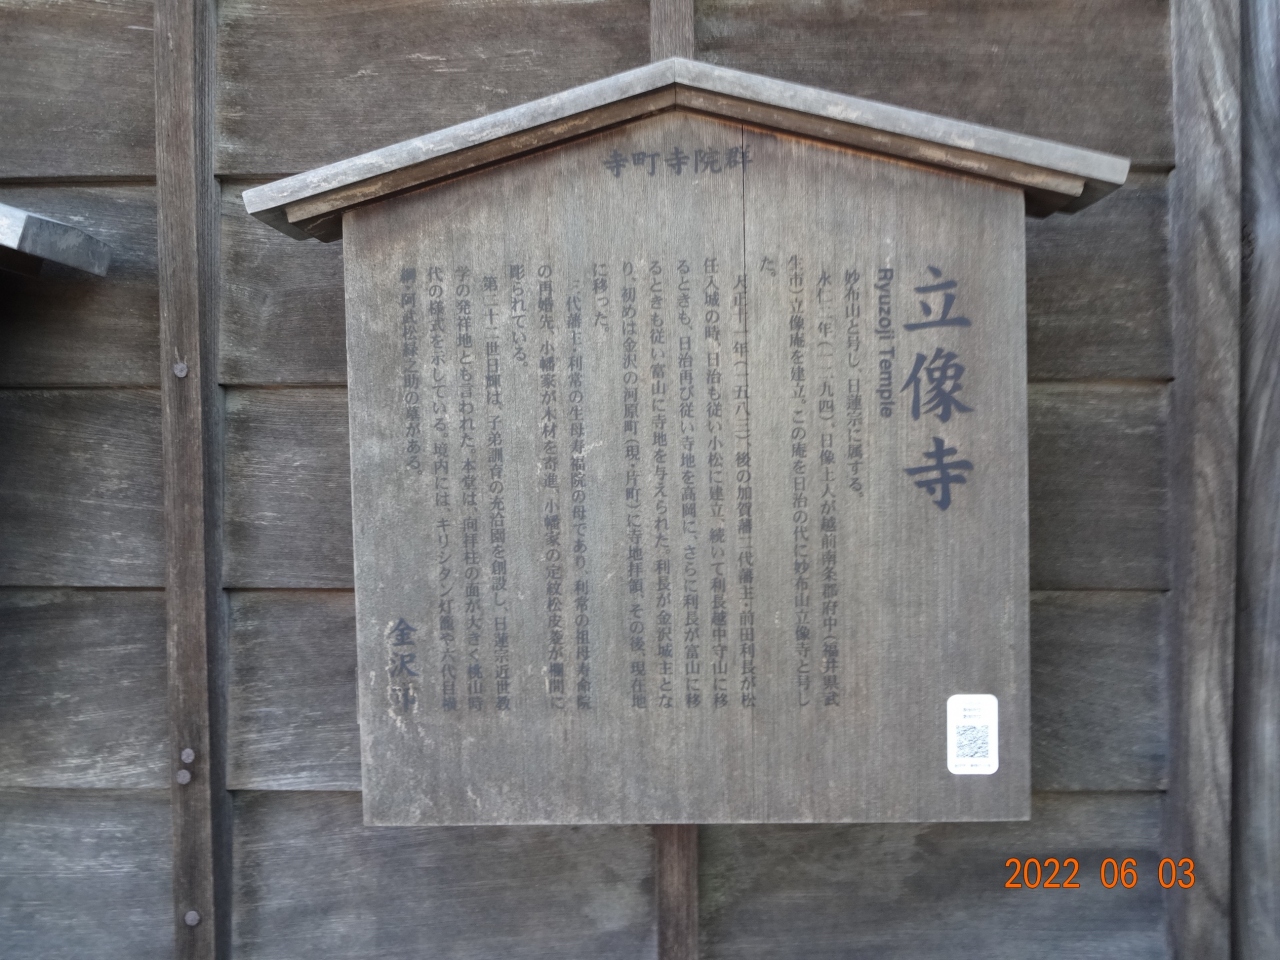 寺町寺院群
立像寺
Ryuzoji Temple
妙布山と号し、日蓮宗に属する。
永仁二年(一二九四)、日像上人が越前南条郡府中(福井県武
生市)に立像庵を建立。この庵を日治の代に妙布山立像寺と号し
た。
天正十一年(一五八三)、後の加賀藩二代藩主・前田利長が松
任入城の時、日治も従い小松に建立、続いて利長越中守山に移
るときも、日治再び従い寺地を高岡に、さらに利長が富山に移
るときも従い富山に寺地を与えられた。利長が金沢城主とな
り、初めは金沢の河原町(現・片町)に寺地拝領、その後、現在地
に移った。
三代藩主・利常の生母寿福院の母であり、利常の祖母寿命院
の再婚先、小幡家が木材を寄進、小幡家の定紋松皮菱が欄間に
彫られている。
第二十二世日輝は、子弟訓育の充洽園を創設し、日蓮宗近世教
学の発祥地とも言われた。本堂は、向拝柱の面が大きく桃山時
代の様式を示している。境内には、キリシタン灯籠や六代目横
綱・阿武松緑之助の墓がある。
金沢市
2022 06 03